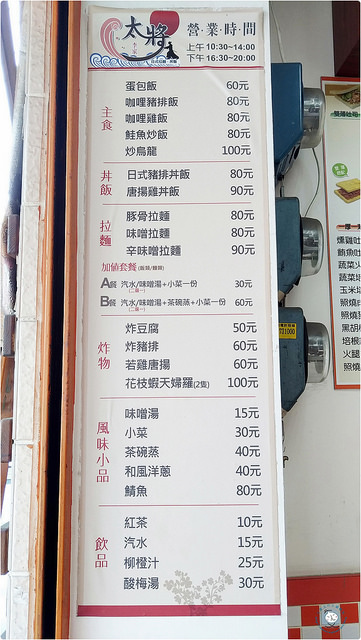 太將
營·業·時·間
上午 10:30~14:00
下午 16:30~20:00
主食
蛋包飯 60元
咖哩豬排飯 80元
咖哩雞飯 80元
鮭魚炒飯 80元
炒烏龍 100元
丼飯
日式豬排丼飯 80元
唐揚雞丼飯 90元
拉麵
豚骨拉麵 80元
味噌拉麵 80元
辛味噌拉麵 90元
加值套餐(飯類/麵類)
A餐 汽水/味噌湯+小菜一份 30元
(二選一)
B餐 汽水/味噌湯+茶碗蒸+小菜一份 60元
(二選一)
炸物
炸豆腐 50元
炸豬排 60元
若雞唐揚 60元
花枝蝦天婦羅(2隻) 100元
風味小品
味噌湯 15元
小菜 30元
茶碗蒸 40元
和風洋蔥 40元
鯖魚 80元
飲品
紅茶 10元
汽水 15元
柳橙汁 25元
酸梅湯 30元
燻雞吐
鮪魚吐
蔬菜火
蔬菜
玉米
照燒
照燒
黑胡
培根
火腿
照燒